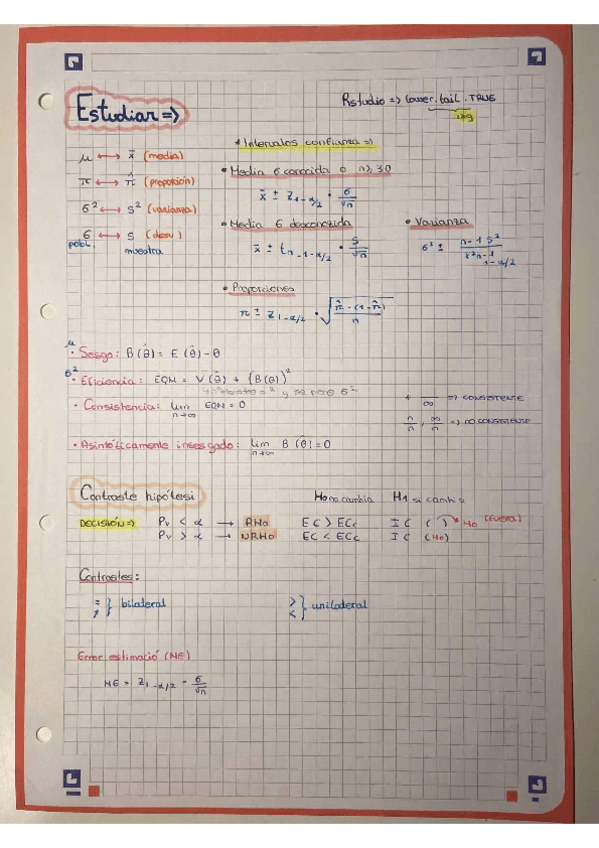 Estudiar =>
Rstudio => lower.tail.TRUE
izq
μ ↔ x̄ (media)
π ↔ π̂ (proporción)
σ² ↔ s² (varianza)
σ ↔ s (desv)
pobl. muestra
* Intervalos confianza =>
• Media σ conocida o n ≥ 30
x̄ ± z₁₋α/₂ · σ/√n
• Media σ desconocida
x̄ ± tn-1-α/2 · s/√n
• Varianza
σ² ± n-1 s² / x²n-1 1-α/2
• Proporciones
π ± z₁₋α/₂ · √(π̂ - (1 - π̂) / n)
μ
• Sesgo: B(θ̂) = E(θ̂) - θ
σ²
• Eficiencia: EQM = V(θ̂) + (B(θ))²
• Consistencia: lim n→∞ EQM = 0
/∞ => CONSISTENTE
n/n, ∞/n => NO CONSISTENTE
• Asintóticamente insesgado: lim n→∞ B(θ̂) = 0
Contraste hipótesi
Ho no cambia H1 si cambia
DECISIÓN => Pv < α → RHo EC > ECc IC ( ) Ho (fuera)
Pv > α → NRHo EC < ECc IC (Ho)
Contrastes:
} bilateral
> < } unilateral
Error estimació (ME)
ME = z₁₋α/₂ · σ/√n